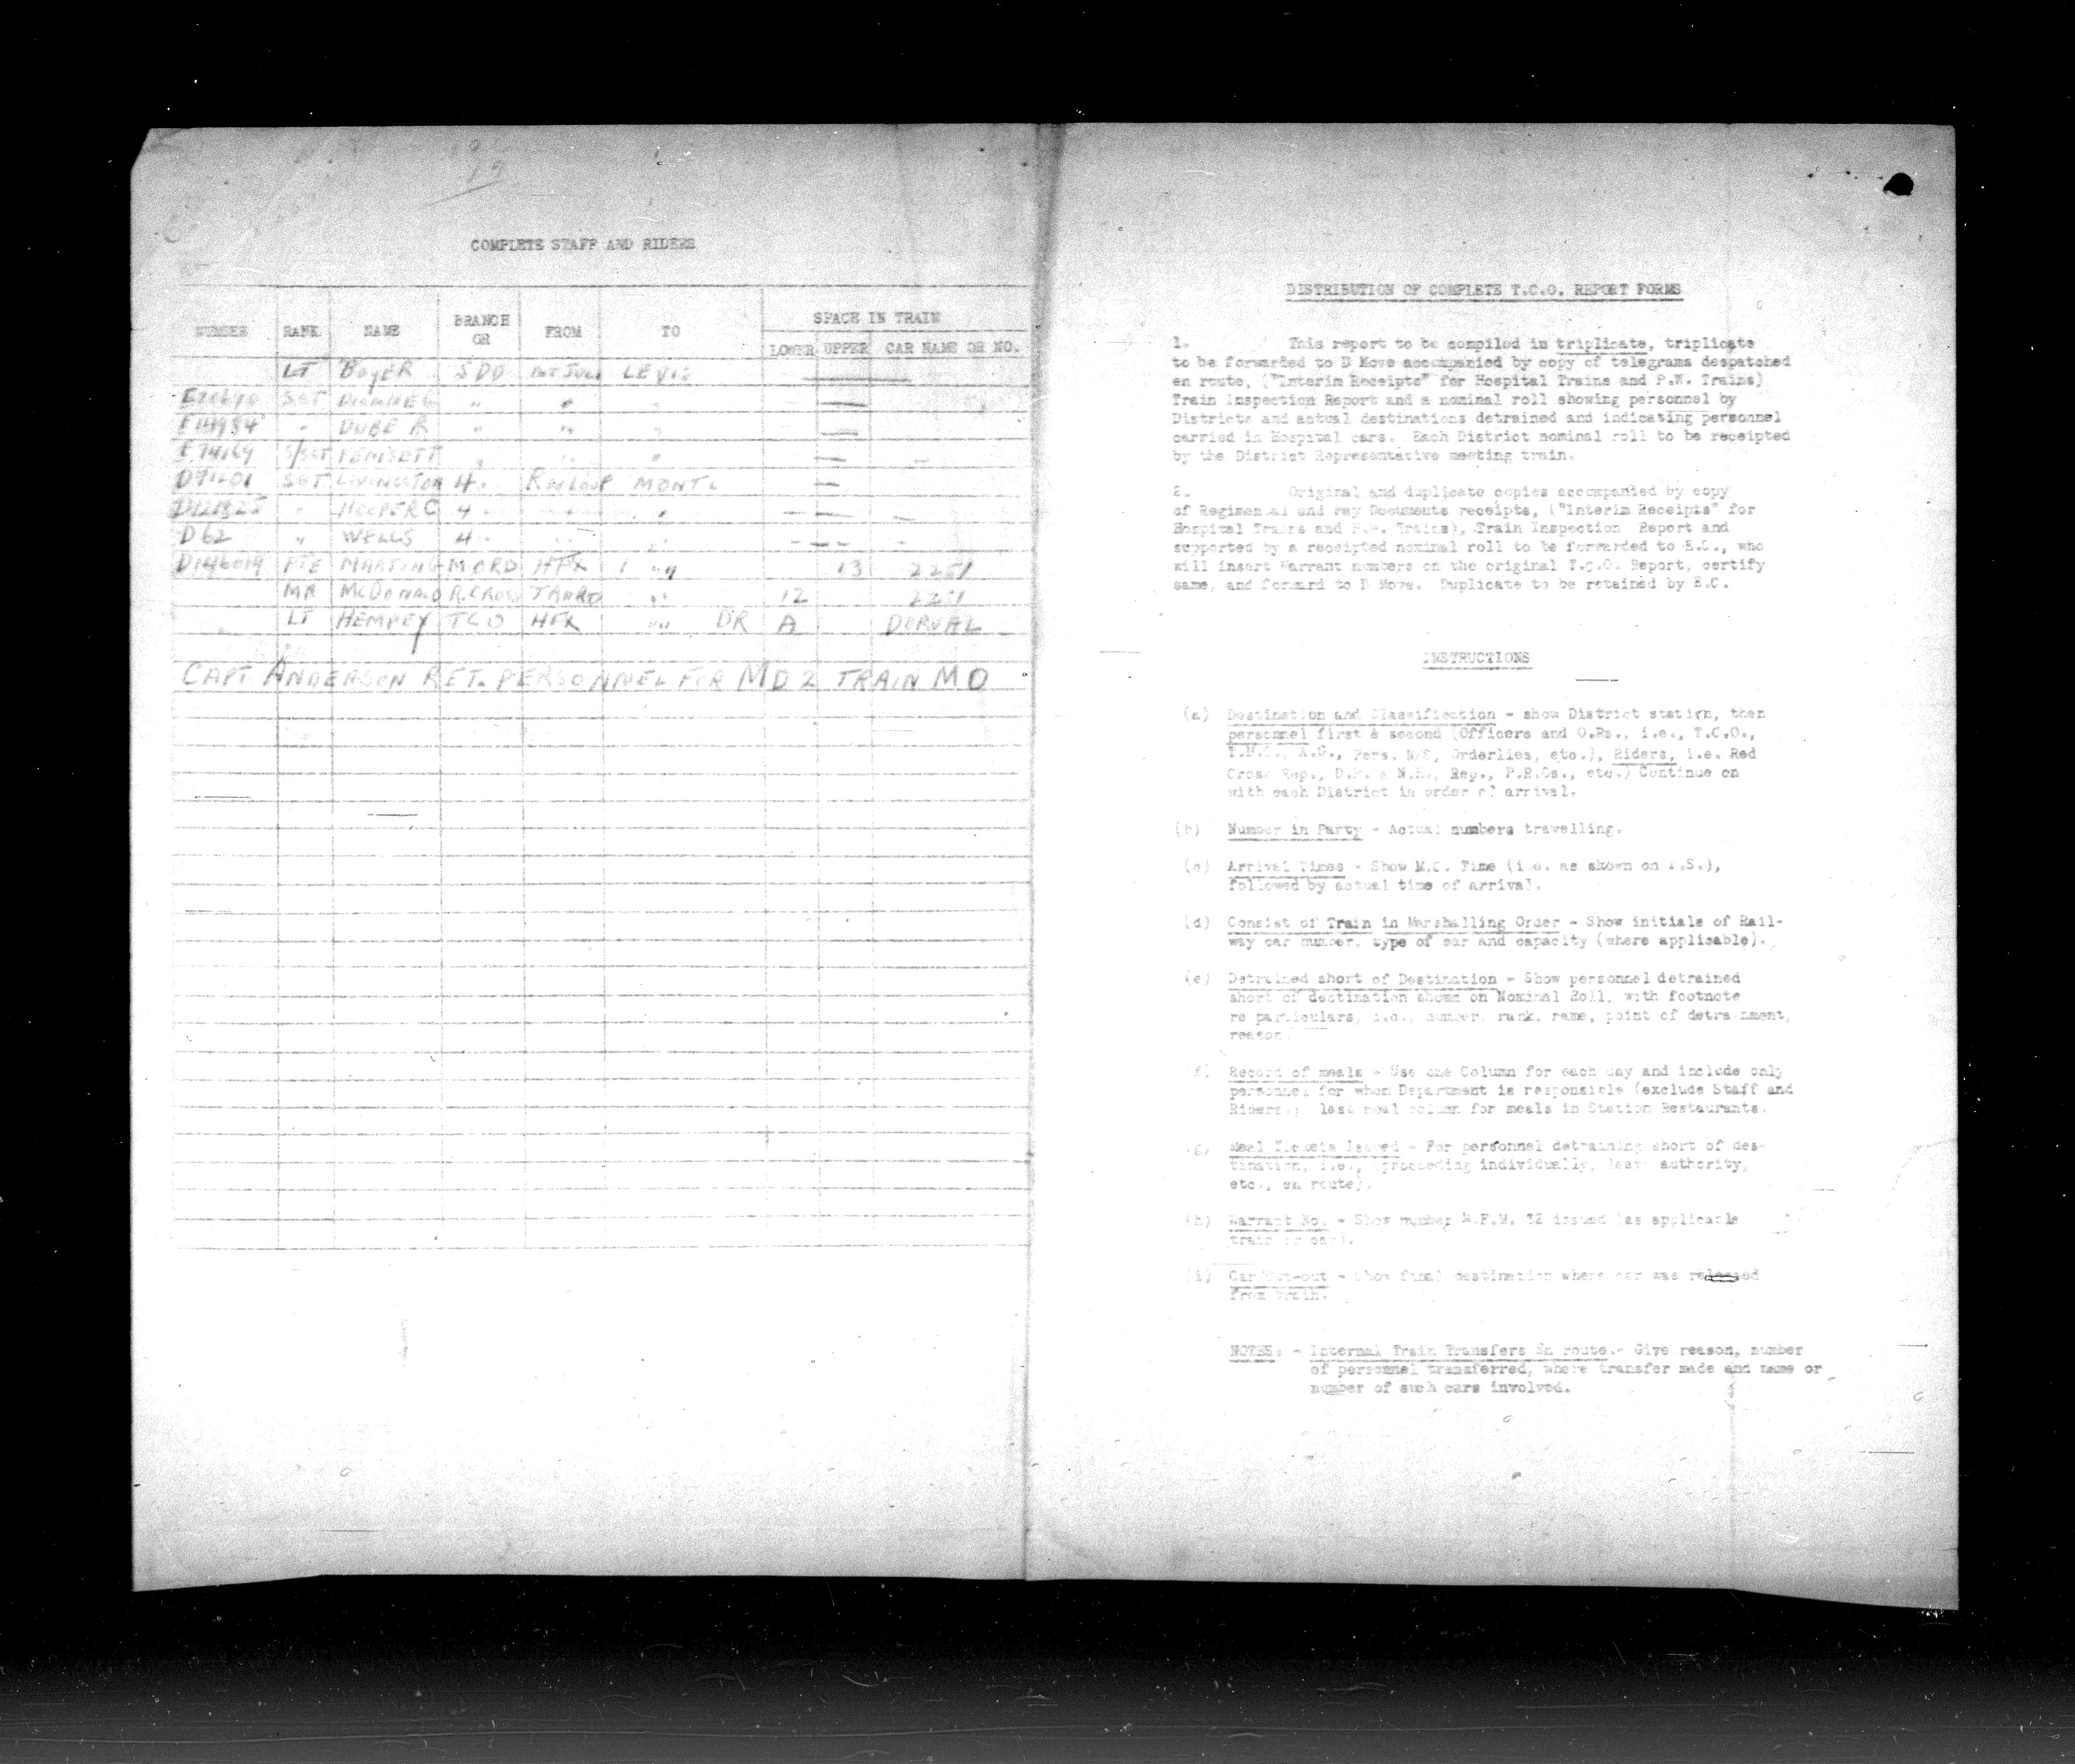 COMPLETE STAFF AND RIDERS
NUMBER RANK NAME BRANCH OR FROM TO SPACE IN TRAIN
LOWER UPPER CAR NAME OR NO.
LT BOYER SDD LEVIS
SGT " " "
DUBE R " " "
E74169 S/SGT " " "
SGT LIVINGSTON 4 MONTL
" HOOPER C 4 "
D62 " WELLS 4 " "
D146019 PTE MARTIN G MORD HFX " 13 2251
MR McDONALD R.CROSS " 12 2251
LT HEMPEY TCO HFX " DR A DORVAL
CAPT. ANDERSON RET. PERSONNEL FOR MD 2 TRAIN MO
DISTRIBUTION OF COMPLETE T.C.O. REPORT FORMS
1. This report to be compiled in triplicate, triplicate
to be forwarded to D Move accompanied by copy of telegrams despatched
en route, ("Interim Receipts" for Hospital Trains and P.W. Trains)
Train Inspection Report and a nominal roll showing personnel by
Districts and actual destinations detrained and indicating personnel
carried in Hospital cars. Each District nominal roll to be receipted
by the District Representative meeting train.
2. Original and duplicate copies accompanied by copy
of Regimental and Pay Documents receipts, ("Interim Receipts" for
Hospital Trains and P.W. Trains), Train Inspection Report and
supported by a receipted nominal roll to be forwarded to E.C., who
will insert Warrant numbers on the original T.C.O. Report, certify
same, and forward to D Move. Duplicate to be retained by E.C.
INSTRUCTIONS
(a) Destination and Classification - show District station, then
personnel first & second (Officers and O.Rs., i.e., T.C.O.,
A.G., Pers. N/S, Orderlies, etc.), Riders, i.e. Red
Cross Rep., D.P. & N.H., Rep., P.R.Os., etc.) Continue on
with each District in order of arrival.
(b) Number in Party - Actual numbers travelling.
(c) Arrival Times - Show M.C. Time (i.e. as shown on T.S.),
followed by actual time of arrival.
(d) Consist of Train in Marshalling Order - Show initials of Rail-
way car number, type of car and capacity (where applicable).
(e) Detrained short of Destination - Show personnel detrained
short of destination shown on Nominal Roll, with footnote
re particulars, i.e., number, rank, name, point of detrainment,
reason.
(f) Record of meals - Use one Column for each day and include only
personnel for whom Department is responsible (exclude Staff and
Riders); last meal column for meals in Station Restaurants.
(g) Meal Tickets Issued - For personnel detraining short of des-
tination, i.e., proceeding individually, leave authority,
etc., en route).
(h) Warrant No. - Show number M.F.M. 32 issued (as applicable
train or car).
(i) Car Run-out - Show final destination where car was released
from train.
NOTES: - Internal Train Transfers En route.- Give reason, number
of personnel transferred, where transfer made and name or
number of such cars involved.